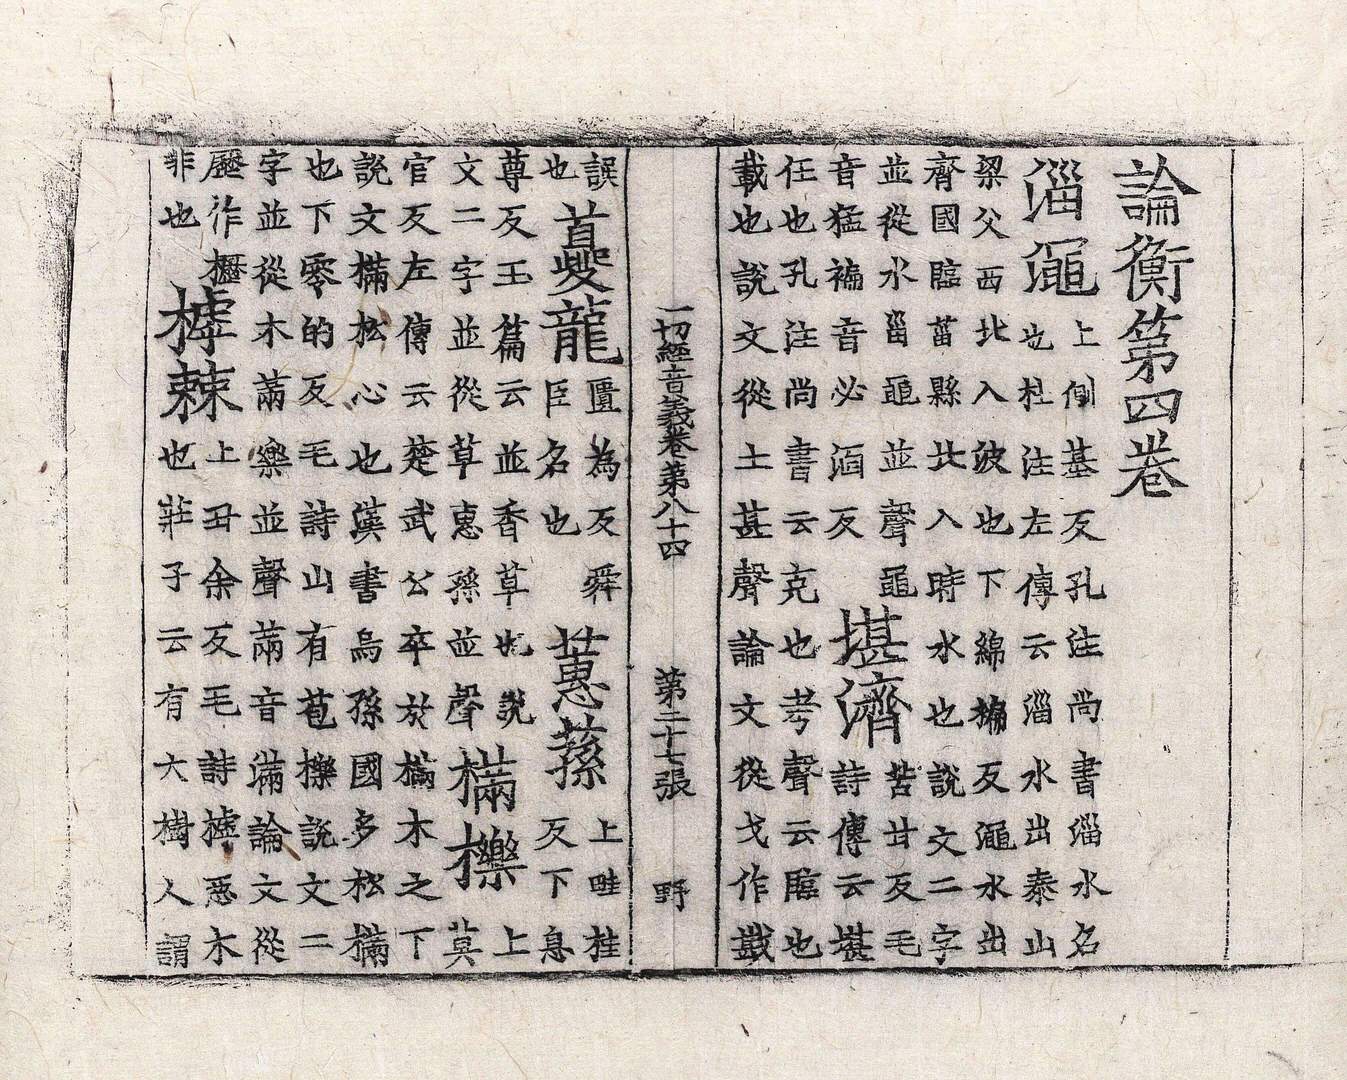 論衡第四卷
淄澠上側基反孔注尚書淄水名
也杜注左傳云淄水出泰山
梁父西北入波也下綿褊反澠水出
齊國臨菑縣北入時水也說文二字
並從水甾黽並聲黽
音猛褊音必湎反
堪濟苦甘反毛
詩傳云堪
任也孔注尚書云克也考聲云臨也
載也說文從土甚聲論文從戈作戡
一切經音義卷第八十四 第二十七張 野
誤
也
夔龍匱為反舜
臣名也
蕙蓀上畦桂
反下息
尊反玉篇云並香草也說
文二字並從草惠孫並聲
樠櫟上
莫
官反左傳云楚武公卒於樠木之下
說文樠松心也漢書烏孫國多松樠
也下零的反毛詩山有苞櫟說文二
字並從木㒼樂並聲㒼音滿論文從
歷作櫪
非也
樗棘上丑余反毛詩樗惡木
也莊子云有大樹人謂